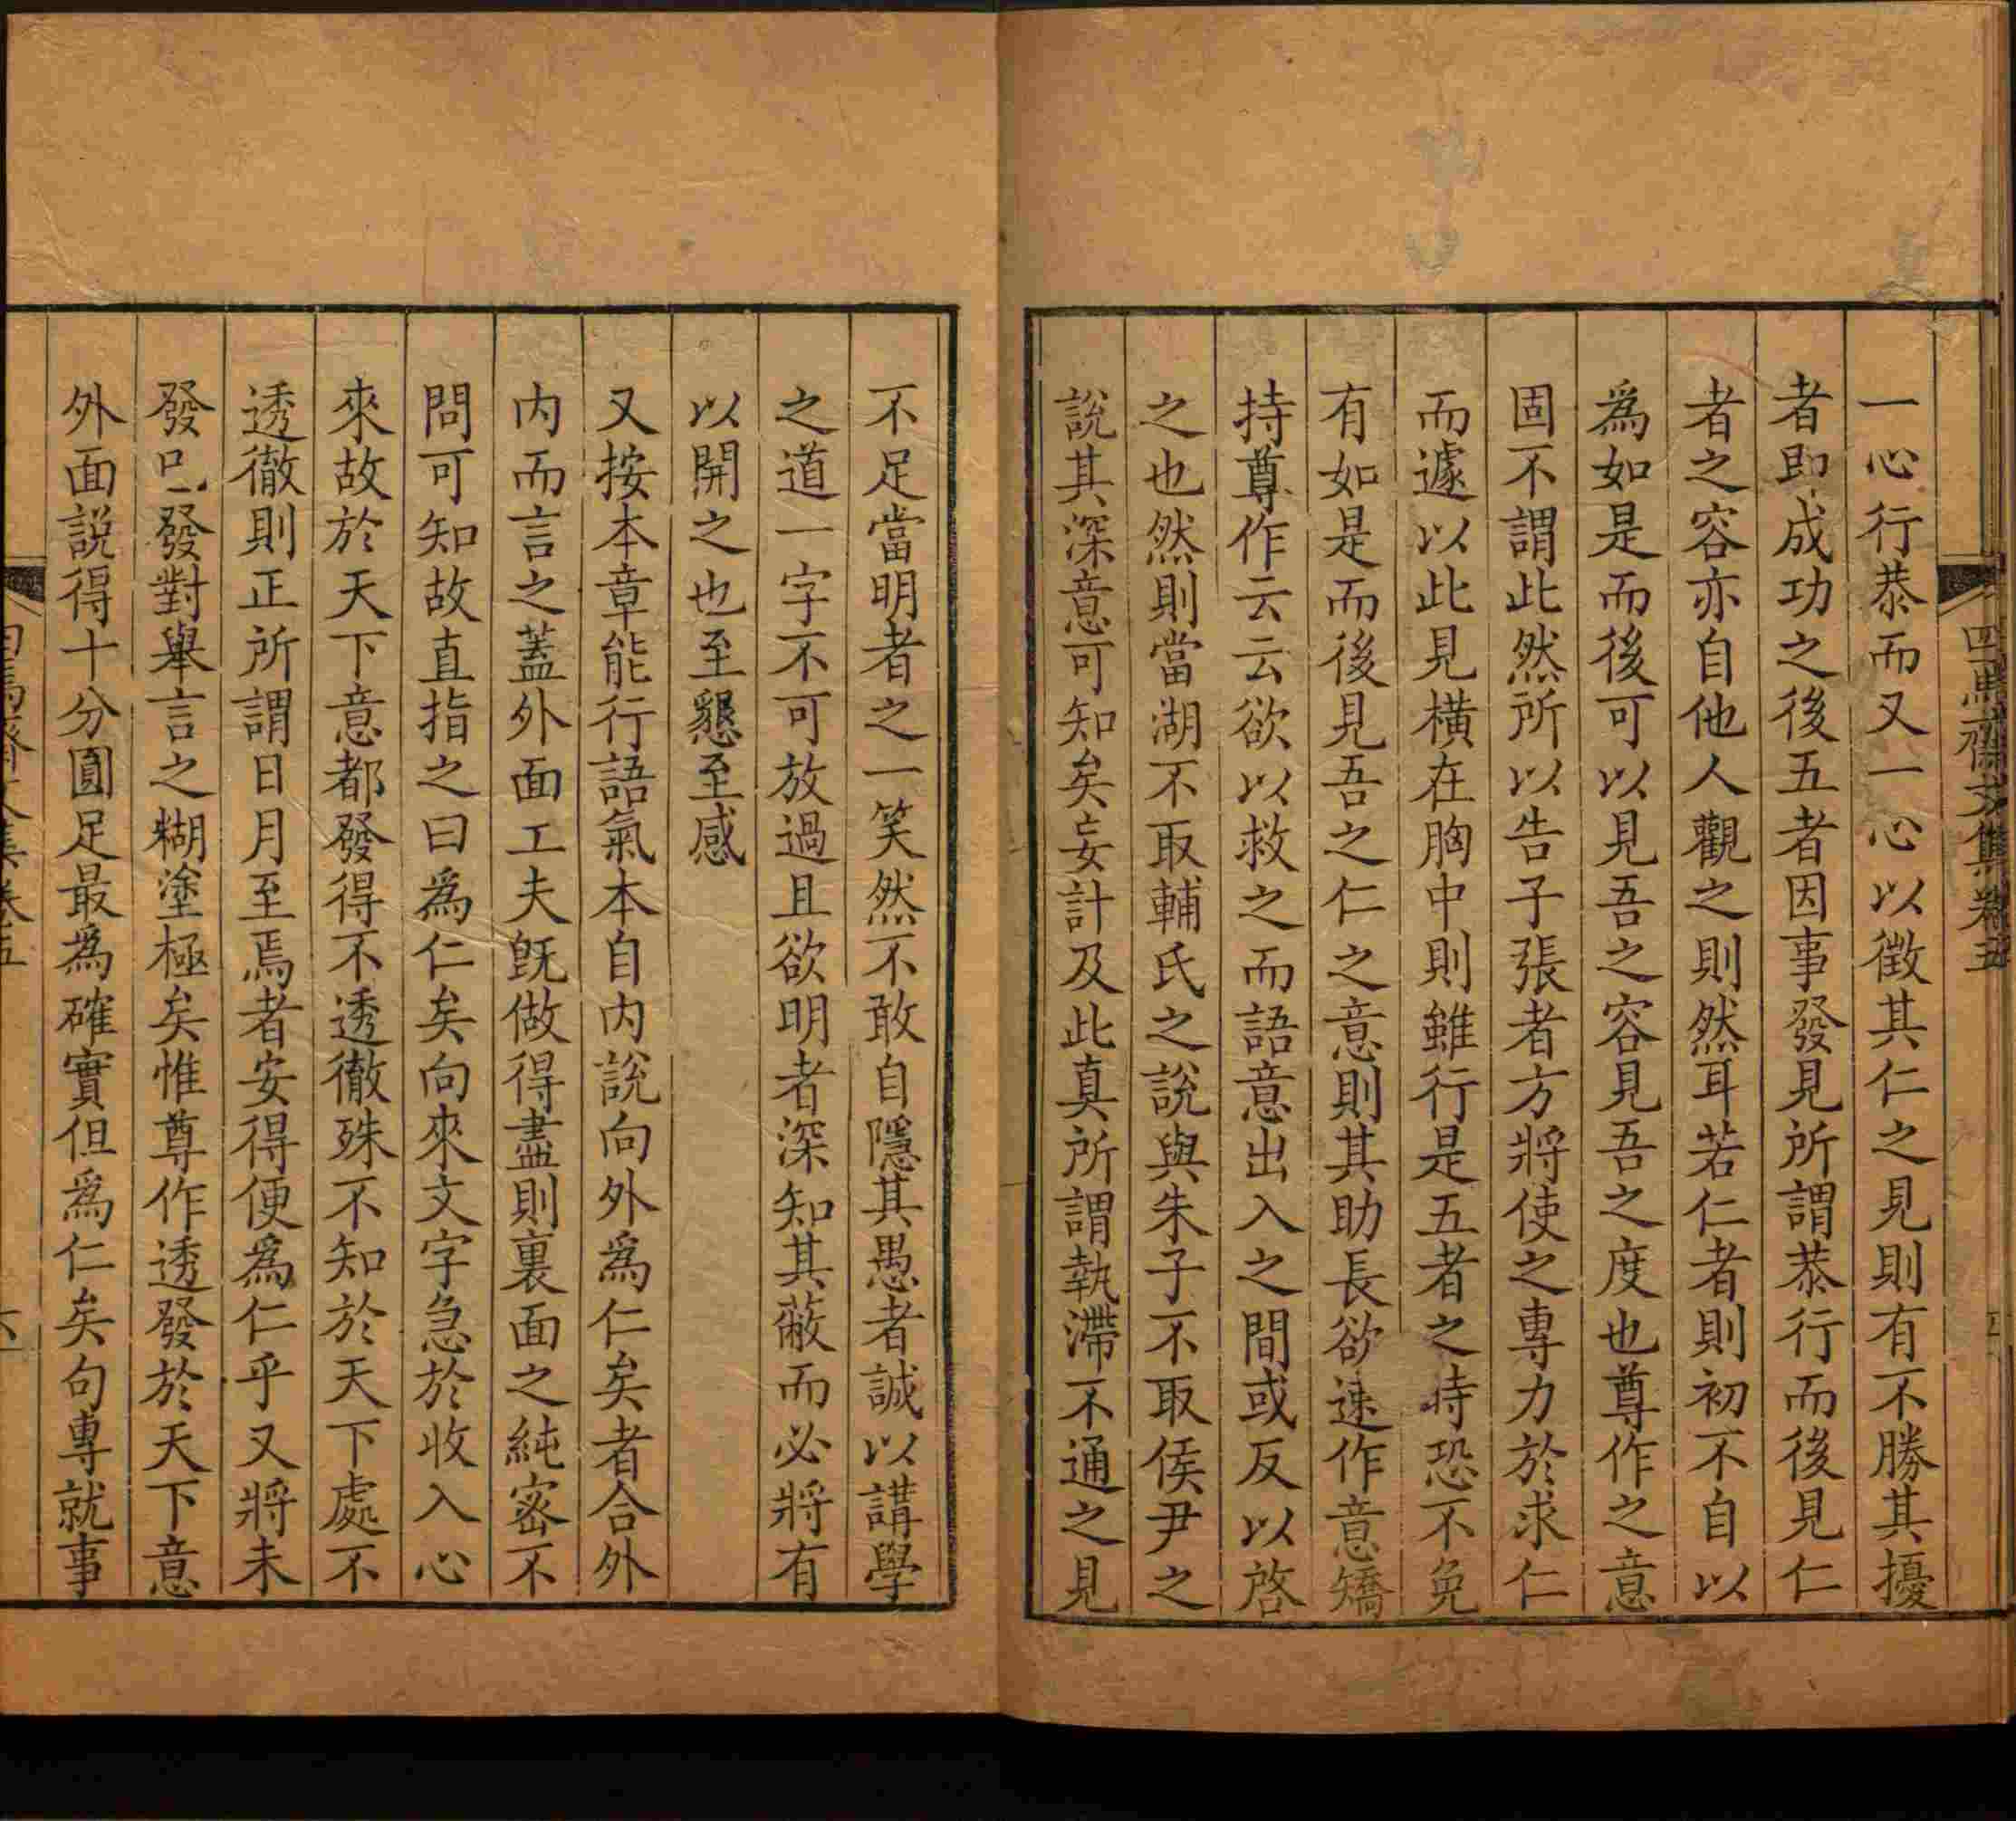 四焉齋文集卷五
一心行恭而又一心以徵其仁之見則有不勝其擾
者即成功之後五者因事發見所謂恭行而後見仁
者之容亦自他人觀之則然耳若仁者則初不自以
爲如是而後可以見吾之容見吾之度也尊作之意
固不謂此然所以告子張者方將使之專力於求仁
而遽以此見橫在胸中則雖行是五者之時恐不免
有如是而後見吾之仁之意則其助長欲速作意矯
持尊作云云欲以救之而語意出入之間或反以啓
之也然則當湖不取輔氏之說與朱子不取侯尹之
說其深意可知矣妄計及此真所謂執滯不通之見
不足當明者之一笑然不敢自隱其愚者誠以講學
之道一字不可放過且欲明者深知其蔽而必將有
以開之也至懇至感
又按本章能行語氣本自内說向外爲仁矣者合外
内而言之蓋外面工夫既做得盡則裏面之純密不
問可知故直指之曰爲仁矣向來文字急於收入心
來故於天下意都發得不透徹殊不知於天下處不
透徹則正所謂日月至焉者安得便爲仁乎又將未
發已發對舉言之糊塗極矣惟尊作透發於天下意
外面説得十分圓足最爲確實但爲仁矣句專就事
四焉齋文集卷五
六